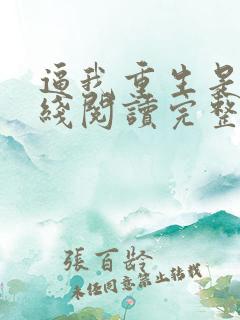 逼我重生是
綫閱讀完整
張百齡
未经同意禁止转载